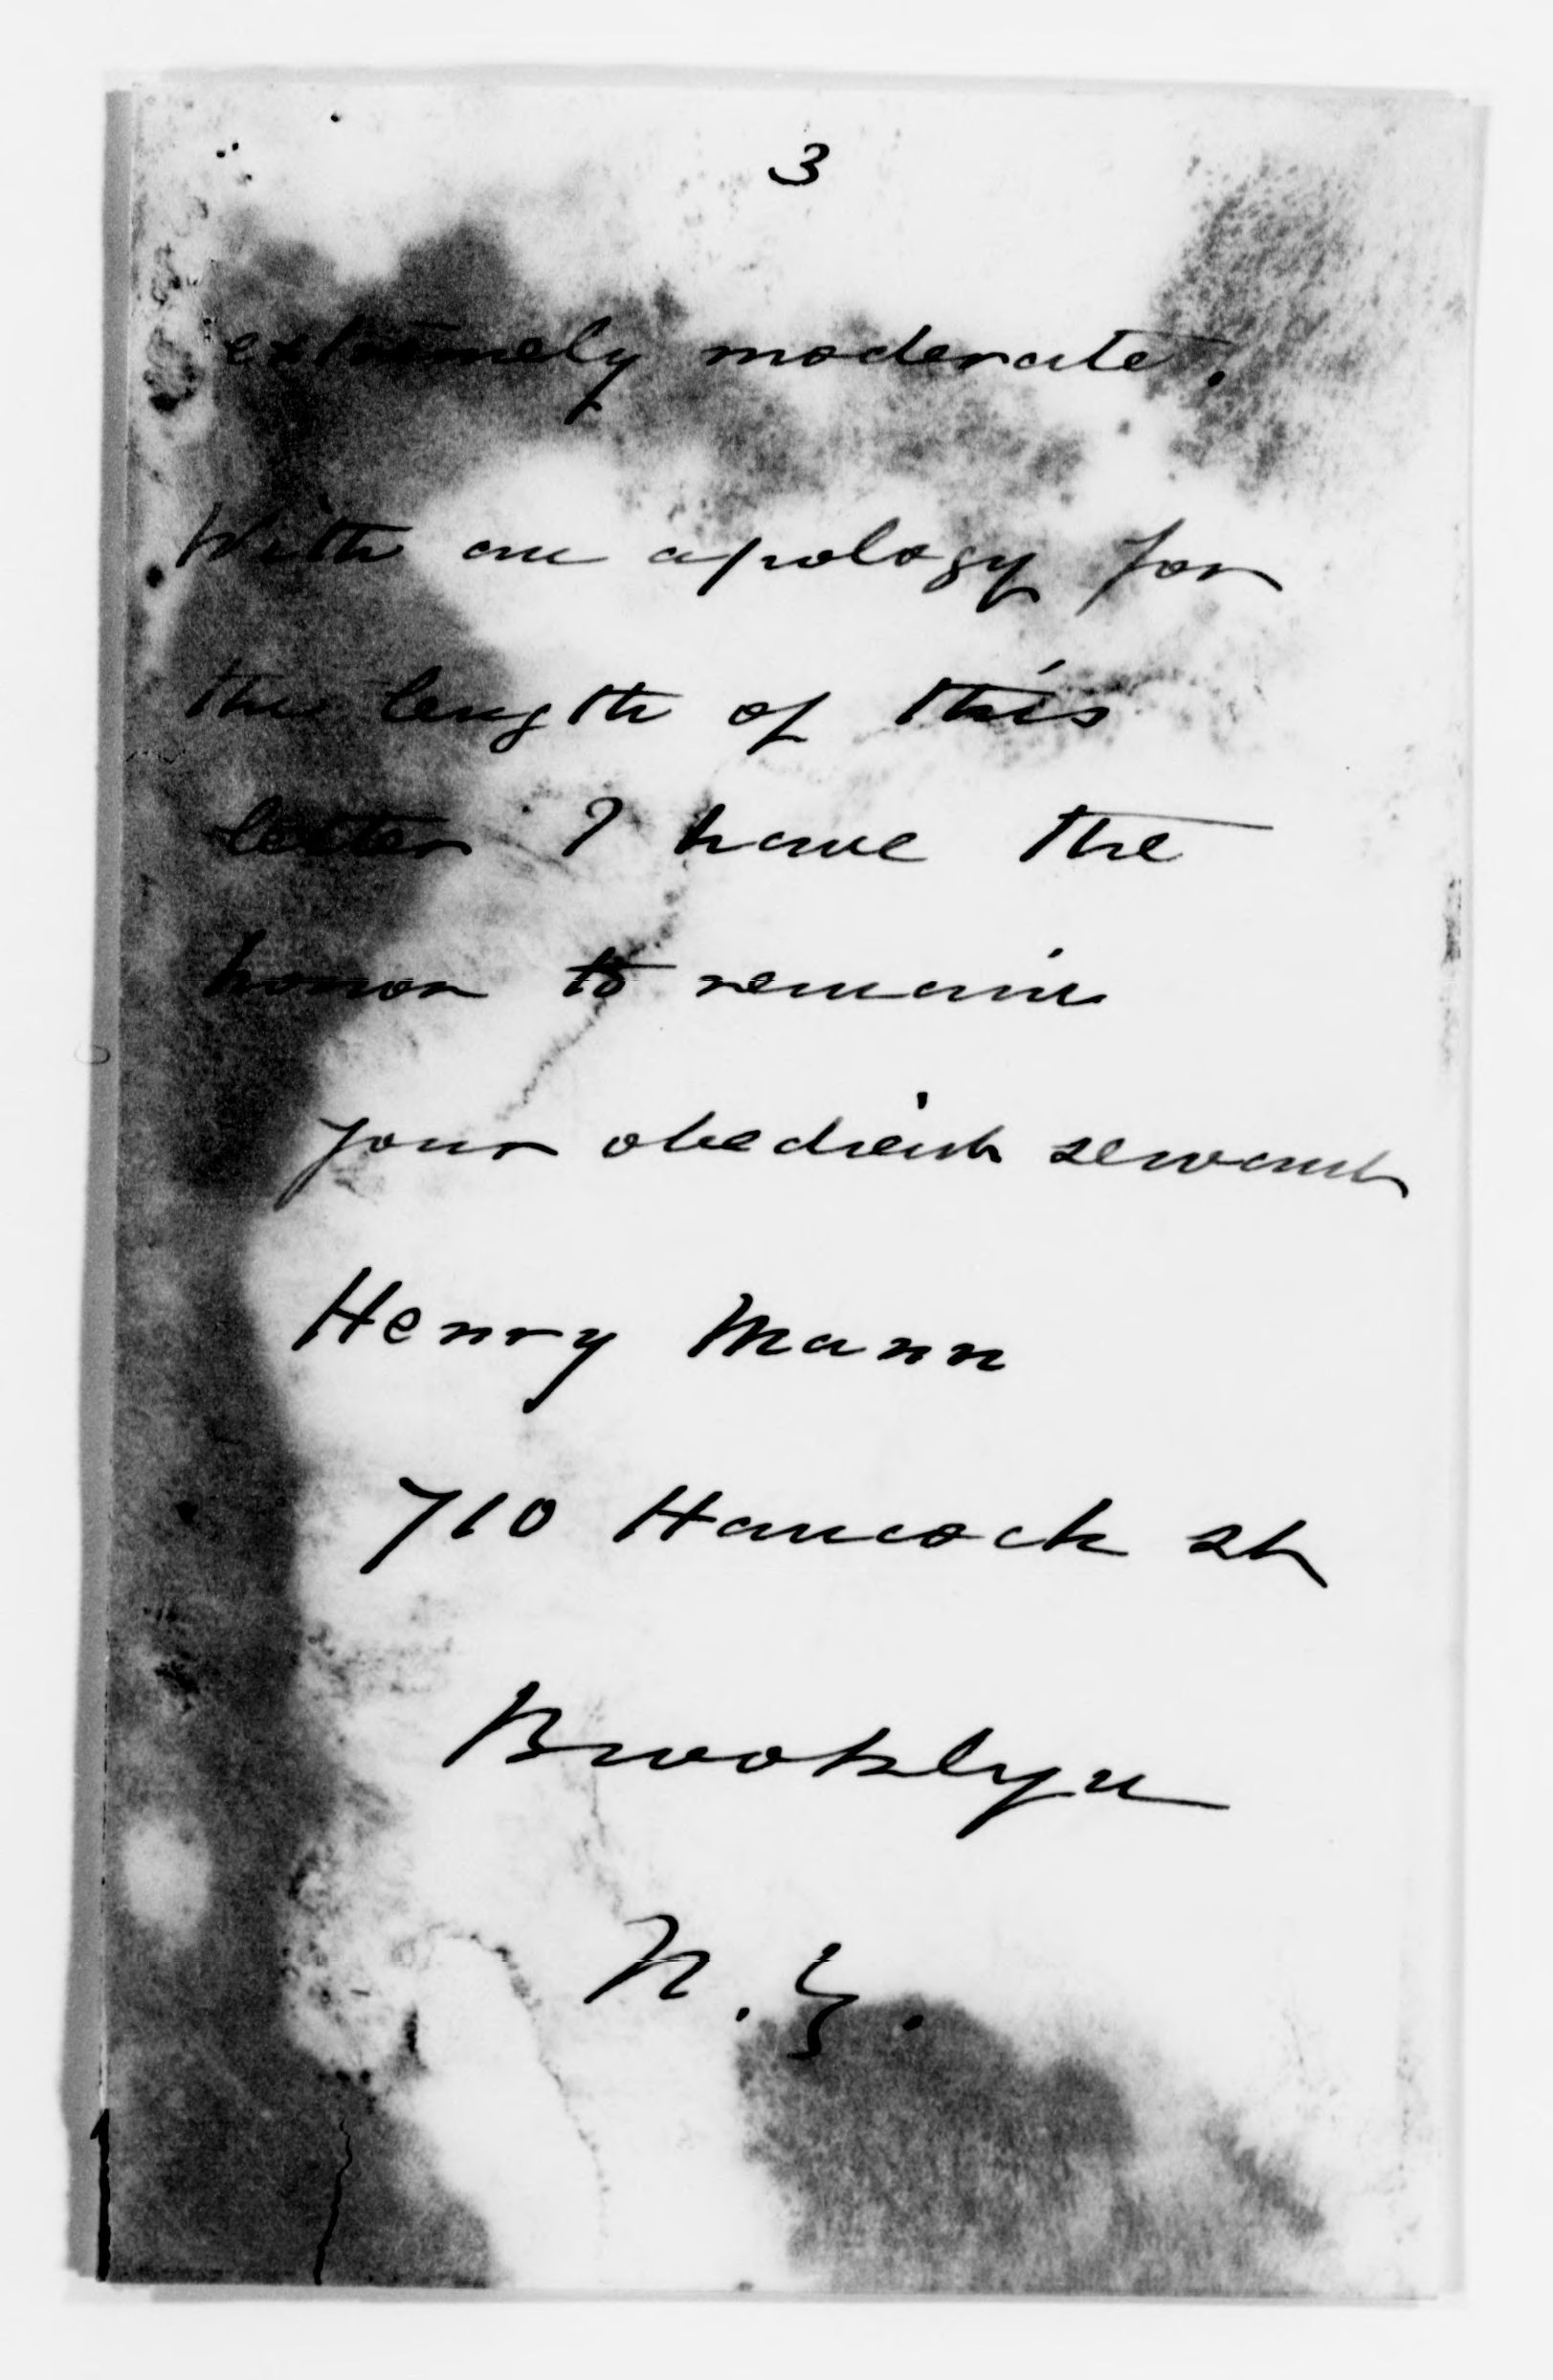 3
extremely moderate.
With an apology for
the length of this
letter I have the
honor to remain
Your obedient servant
Henry Mann
710 Hancock St
Brooklyn
N.Y.